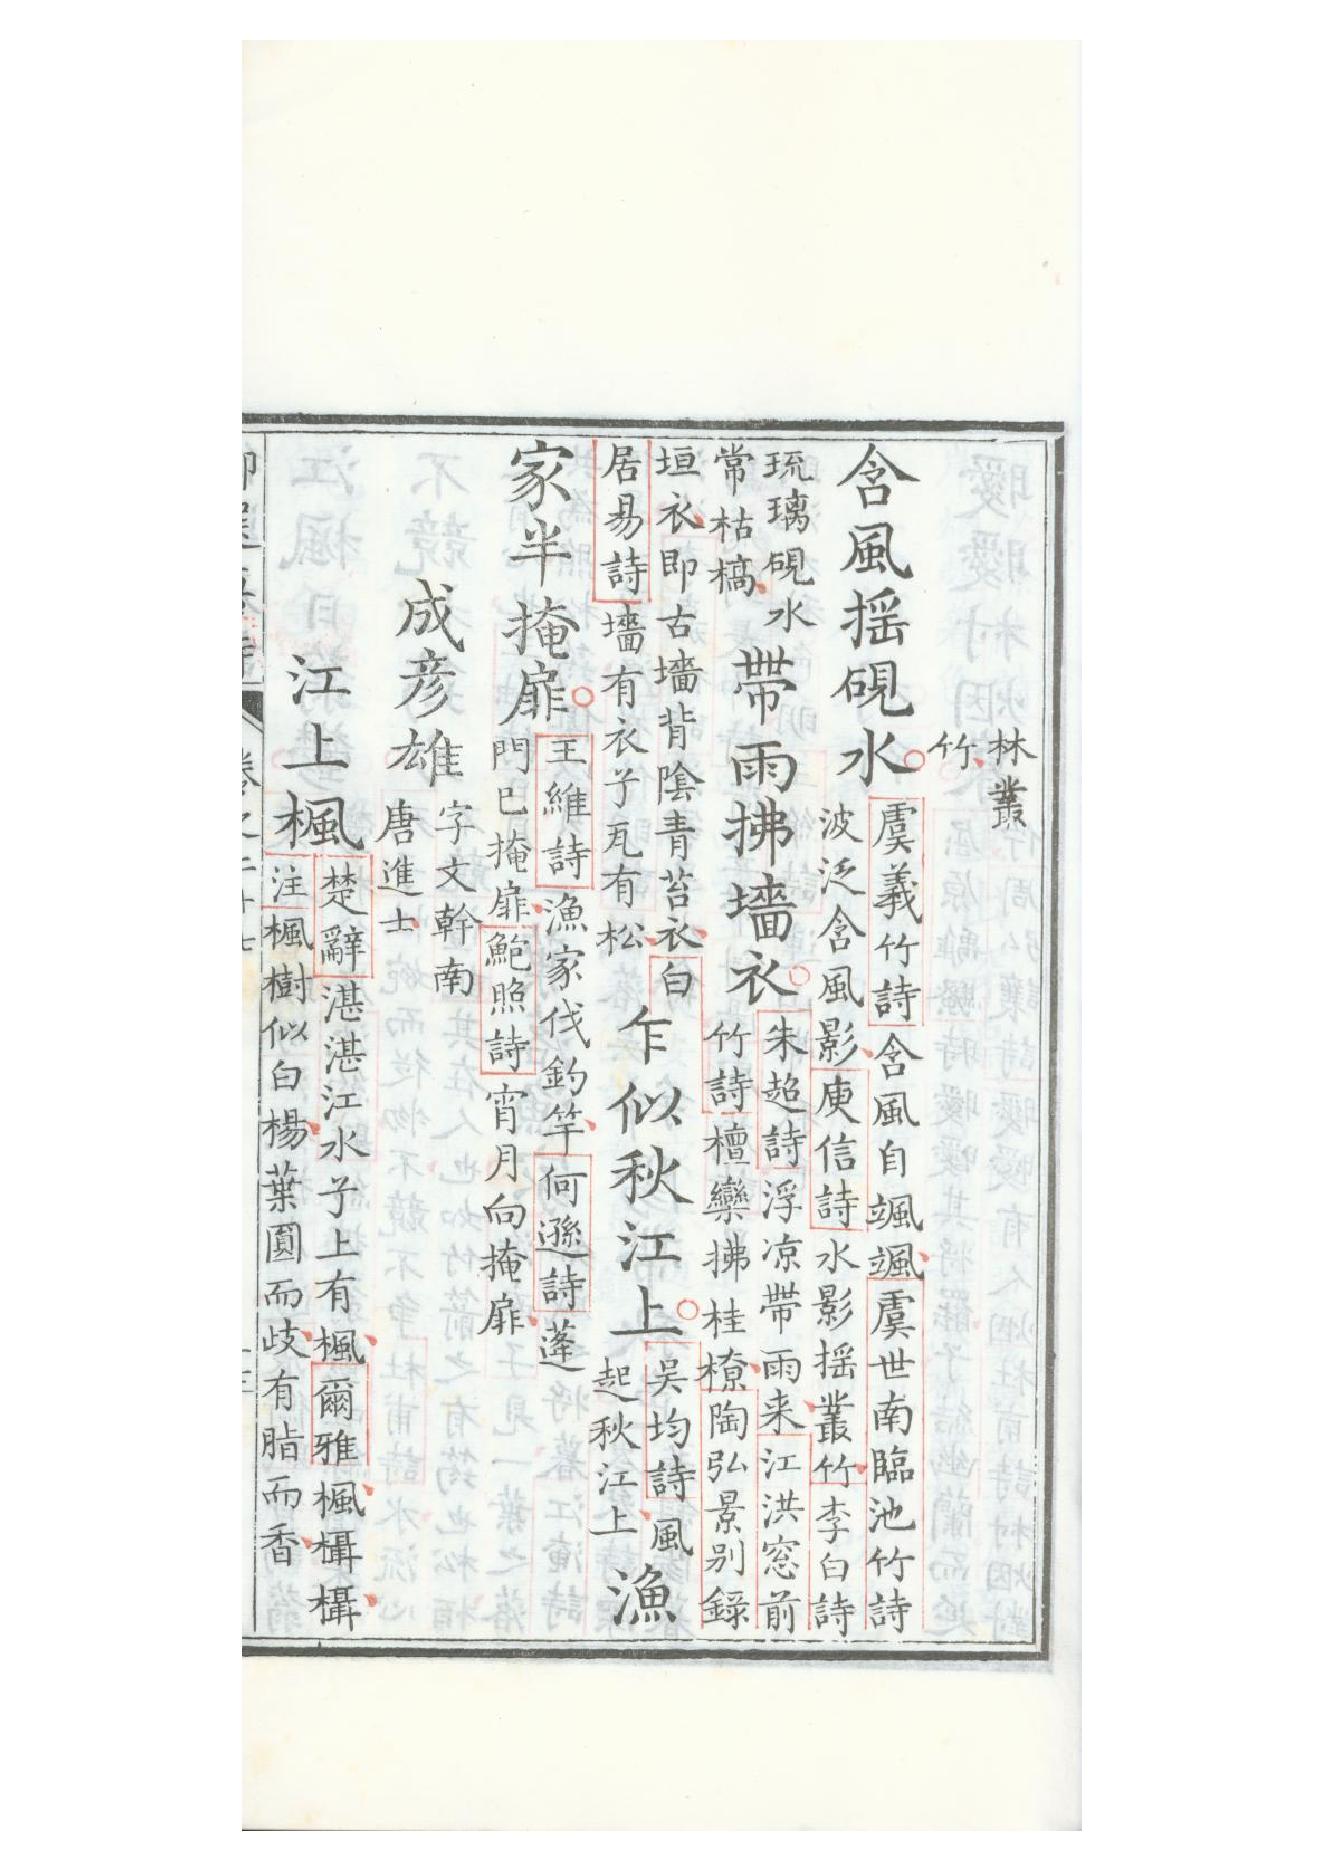 林叢
竹
含風揺硯水
虞義竹詩含風自颯颯虞世南臨池竹詩
波泛含風影庾信詩水影揺叢竹李白詩
琉璃硯水
常枯槁
帶雨拂墻衣
朱超詩浮凉帶雨来江洪窓前
竹詩檀欒拂桂橑陶弘景别錄
垣衣即古墻背陰青苔衣白
居易詩墻有衣子瓦有松
乍似秋江上
吳均詩風
起秋江上
漁
家半掩扉
王維詩漁家伐釣竿何遜詩蓬
門巳掩扉鮑照詩宵月向掩扉
成彦雄
字文幹南
唐進士
江上楓
楚辭湛湛江水子上有楓爾雅楓欇欇
注楓樹似白楊葉圓而歧有脂而香